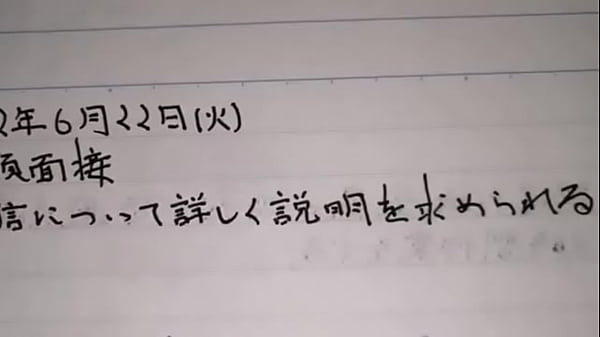 2年6月22日(火)
面接
について詳しく説明を求められる